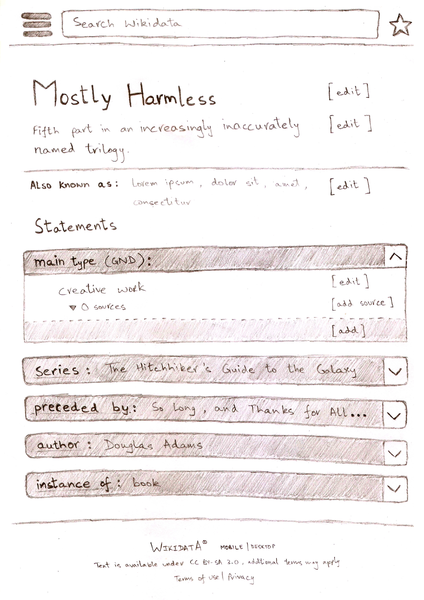 Search Wikidata
Mostly Harmless [edit]
Fifth part in an increasingly inaccurately [edit]
named trilogy.
Also known as: lorem ipsum, dolor sit, amet, [edit]
consectitur
Statements
main type (GND):
creative work [edit]
0 sources [add source]
[add]
Series: The Hitchhiker's Guide to the Galaxy
preceded by: So Long, and Thanks for All...
author: Douglas Adams
instance of: book
WIKIDATA® MOBILE | DESKTOP
Text is available under CC BY-SA 3.0, additional terms may apply
Terms of Use | Privacy